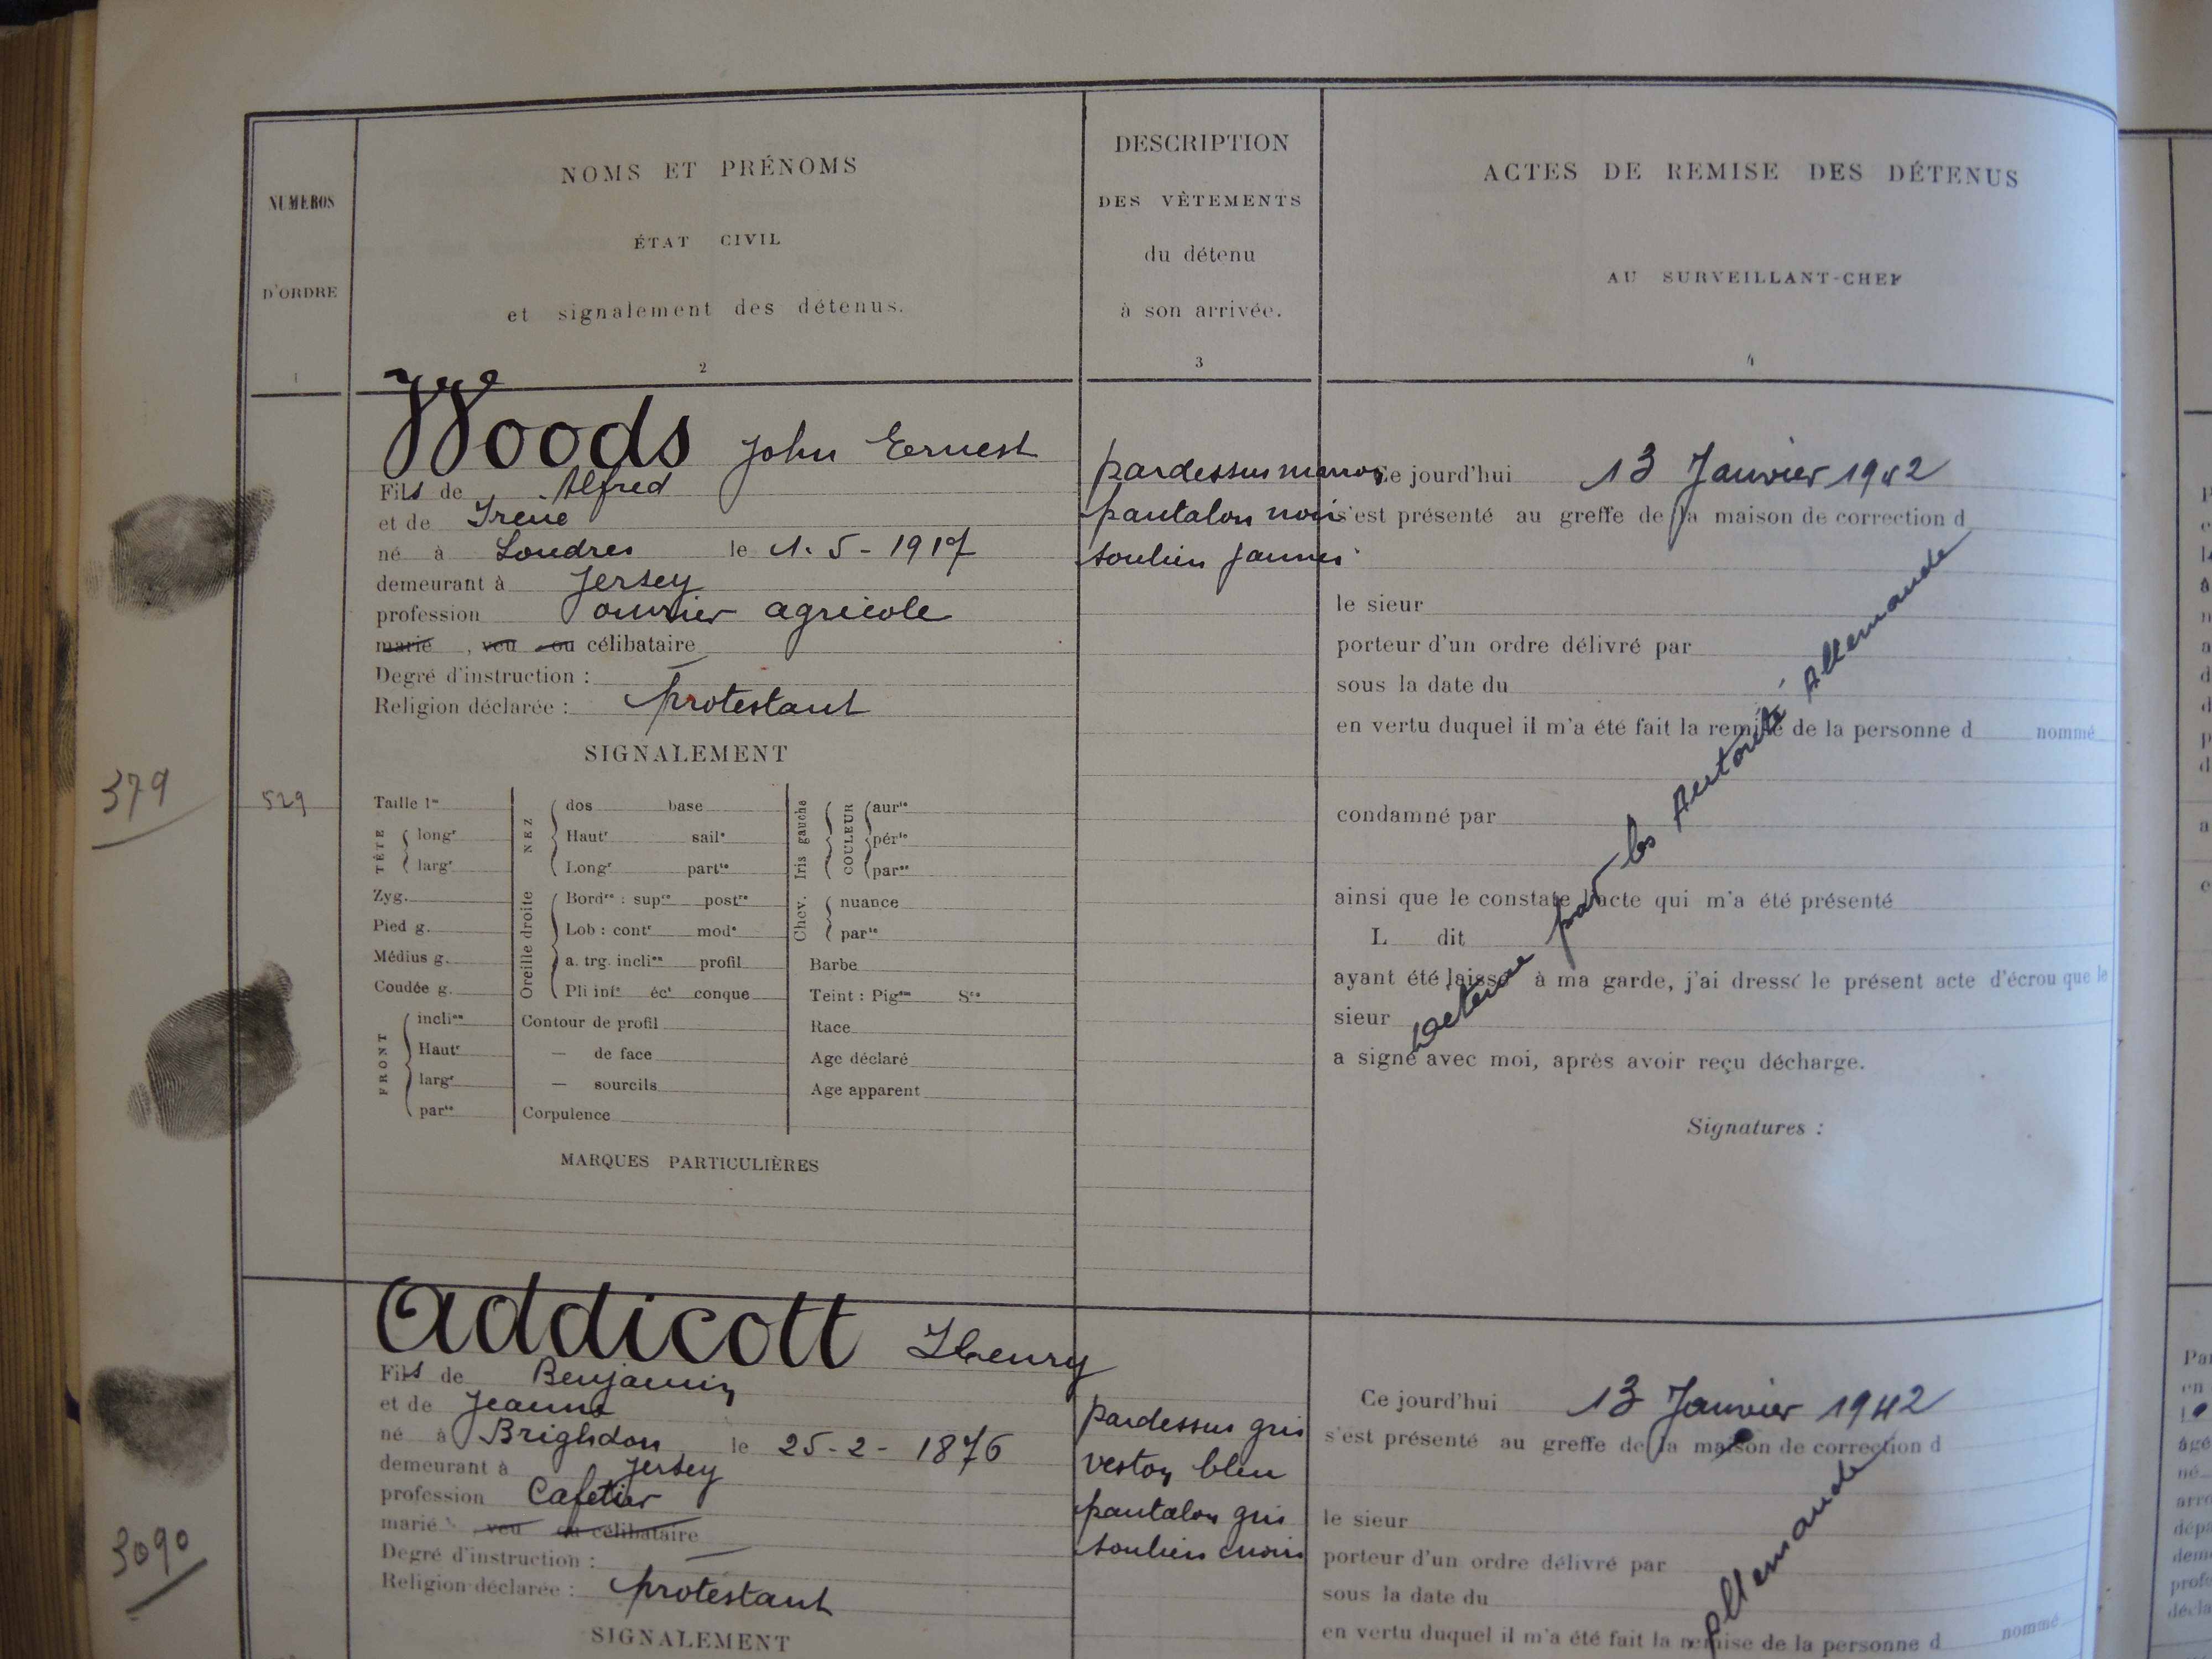 NUMÉROS
D'ORDRE
1
NOMS ET PRÉNOMS
ÉTAT CIVIL
et signalement des détenus.
2
DESCRIPTION
DES VÊTEMENTS
du détenu
à son arrivée.
3
ACTES DE REMISE DES DÉTENUS
AU SURVEILLANT-CHEF
4
379
529
Woods John Ernest
Fils de Alfred
et de Irene
né à Londres le 1.5-1917
demeurant à Jersey
profession ouvrier agricole
marié, veu ou célibataire
Degré d'instruction : —
Religion déclarée : protestant
SIGNALEMENT
Taille 1m
TÊTE
longr
largr
Zyg.
Pied g.
Médius g.
Coudée g.
FRONT
inclion
Hautr
largr
parté
NEZ
dos base
Hautr saile
Longr partté
Oreille droite
Bordre : supre postre
Lob : contr mode
a. trg. inclion profil
Pli infe éct conque
Contour de profil
— de face
— sourcils
Corpulence
Iris gauche
COULEUR
aurle
périe
parés
Chev.
nuance
parté
Barbe
Teint : Pigon Sre
Race
Age déclaré
Age apparent
MARQUES PARTICULIÈRES
pardessus marron
pantalon noir
souliers jaunes
Ce jourd'hui 13 Janvier 1942
s'est présenté au greffe de la maison de correction d
le sieur
porteur d'un ordre délivré par
sous la date du
en vertu duquel il m'a été fait la remise de la personne d nommé
condamné par
ainsi que le constate l'acte qui m'a été présenté
L dit
ayant été laissé à ma garde, j'ai dressé le présent acte d'écrou que le
sieur
a signé avec moi, après avoir reçu décharge.
Signatures :
par les Autorité Allemande
3090
Addicott Henry
Fils de Benjamin
et de Jeanne
né à Brighdon le 25-2-1876
demeurant à Jersey
profession Cafetier
marié, veu ou célibataire
Degré d'instruction : —
Religion déclarée : protestant
SIGNALEMENT
pardessus gris
veston bleu
pantalon gris
souliers noirs
Ce jourd'hui 13 Janvier 1942
s'est présenté au greffe de la maison de correction d
le sieur
porteur d'un ordre délivré par
sous la date du
en vertu duquel il m'a été fait la remise de la personne d nommé
Allemande